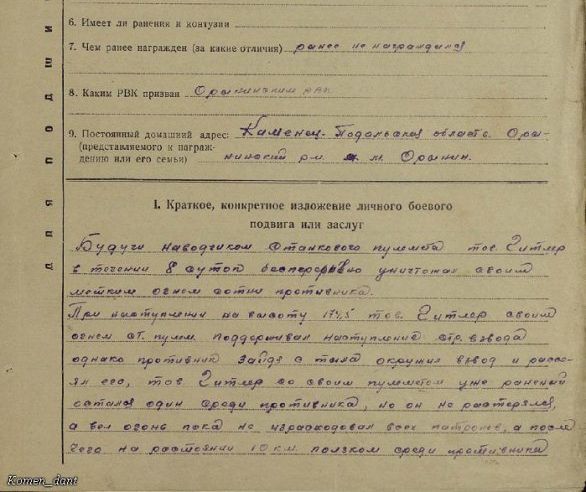 6. Имеет ли ранения и контузии
7. Чем ранее награжден (за какие отличия) ранее не награждался
8. Каким РВК призван Орынинским рвк
9. Постоянный домашний адрес: Каменец-Подольская область Оры-
(представляемого к награж-
дению или его семьи) нинский р-н м. Орынин.
I. Краткое, конкретное изложение личного боевого
подвига или заслуг
Будучи наводчиком станкового пулемета тов. Гитлер
в течении 8 суток беспрерывно уничтожал своим
метким огнем сотни противника.
При наступлении на высоту 174,5 тов. Гитлер своим
огнем ст. пулем. поддерживал наступление стр. взвода
однако противник зайдя с тыла окружил взвод и рассе-
ял его, тов. Гитлер со своим пулеметом уже раненый
остался один среди противника, но он не растерялся,
а вел огонь пока не израсходовал всех патронов, а после
чего на расстоянии 10 км. ползком среди противника
для подши
Komen_dant